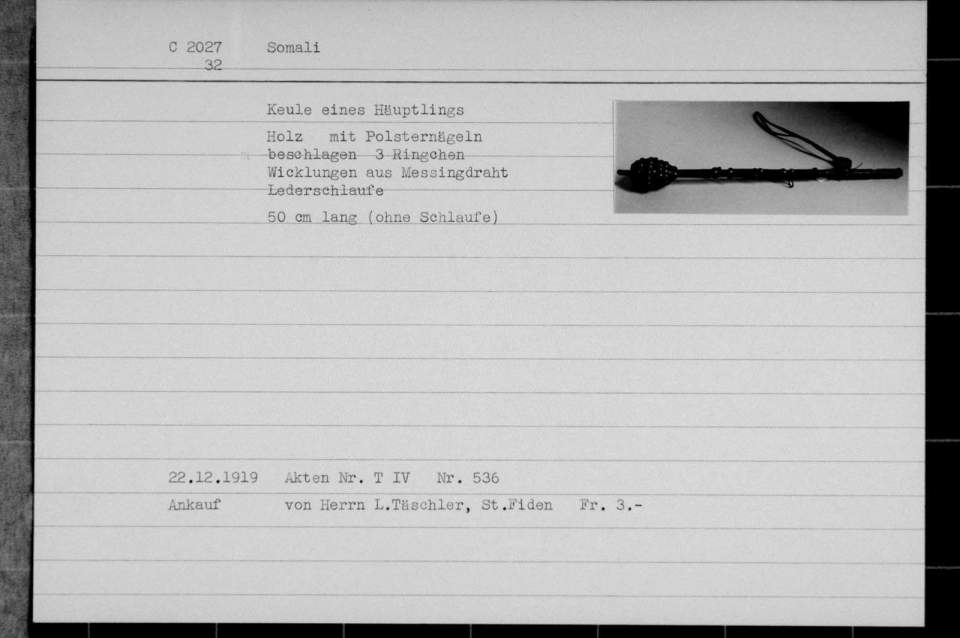 C 2027 Somali
32
Keule eines Häuptlings
Holz mit Polsternägeln
beschlagen 3 Ringchen
Wicklungen aus Messingdraht
Lederschlaufe
50 cm lang (ohne Schlaufe)
22.12.1919 Akten Nr. T IV Nr. 536
Ankauf von Herrn L.Täschler, St.Fiden Fr. 3.-